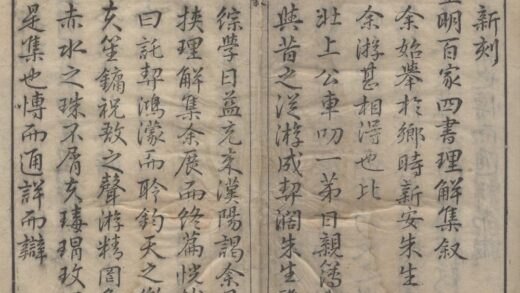 新刻
明百家四書理解集敘
余始舉於鄉時新安朱生
余游甚相得也比
壯上公車叨一第日親
與昔之從游成契濶朱生
綜學日益充來漢陽謁余
挾理解集余展而終篇恍
曰託契鴻濛而聆鈞天之
夫笙鏞祝敔之聲游精罔
赤水之珠不屑夫瑇瑁玫
是集也博而通詳而辯